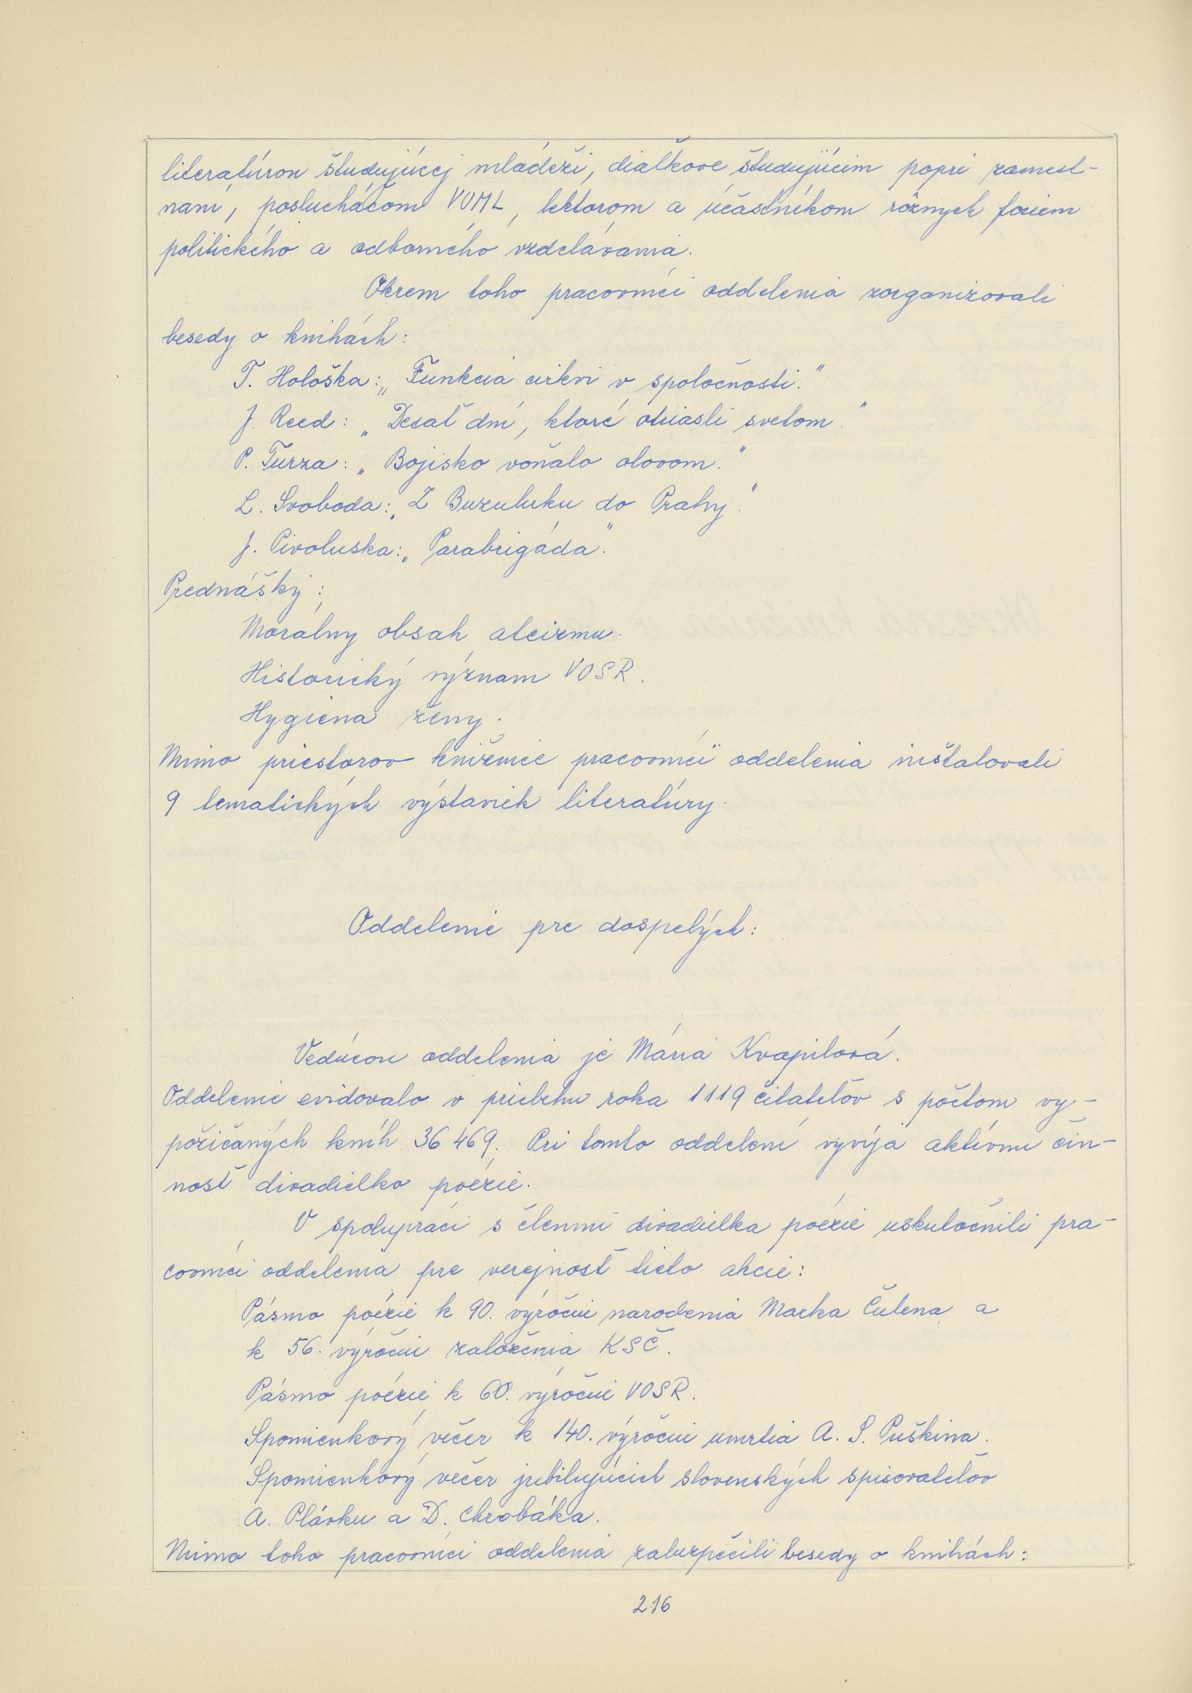 literatúrou študujúcej mládeži, diaľkove študujúcim popri zamest-
naní, poslucháčom VUML, lektorom a účastníkom rôznych foriem
politického a odborného vzdelávania.
Okrem toho pracovníci oddelenia zorganizovali
besedy o knihách:
T. Hološka: „Funkcia cirkvi v spoločnosti."
J. Reed: „Desať dní, ktoré otriasli svetom."
P. Turza: „Bojisko voňalo olovom."
L. Svoboda: „Z Buzuluku do Prahy."
J. Pivoluska: „Parabrigáda."
Prednášky:
Morálny obsah ateizmu.
Historický význam VOSR.
Hygiena ženy.
Mimo priestorov knižnice pracovníci oddelenia inštalovali
9 tematických výstaviek literatúry.
Oddelenie pre dospelých:
Vedúcou oddelenia je Mária Kvapilová.
Oddelenie evidovalo v priebehu roka 1119 čitateľov s počtom vy-
požičaných kníh 36 469. Pri tomto oddelení vyvíja aktívnu čin-
nosť divadielko poézie.
V spolupráci s členmi divadielka poézie uskutočnili pra-
covníci oddelenia pre verejnosť tieto akcie:
Pásmo poézie k 90. výročiu narodenia Marka Čulena a
k 56. výročiu založenia KSČ.
Pásmo poézie k 60. výročiu VOSR.
Spomienkový večer k 140. výročiu umrtia A. S. Puškina.
Spomienkový večer jubilujúcich slovenských spisovateľov
A. Plávku a D. Chrobáka.
Mimo toho pracovníci oddelenia zabezpečili besedy o knihách:
216